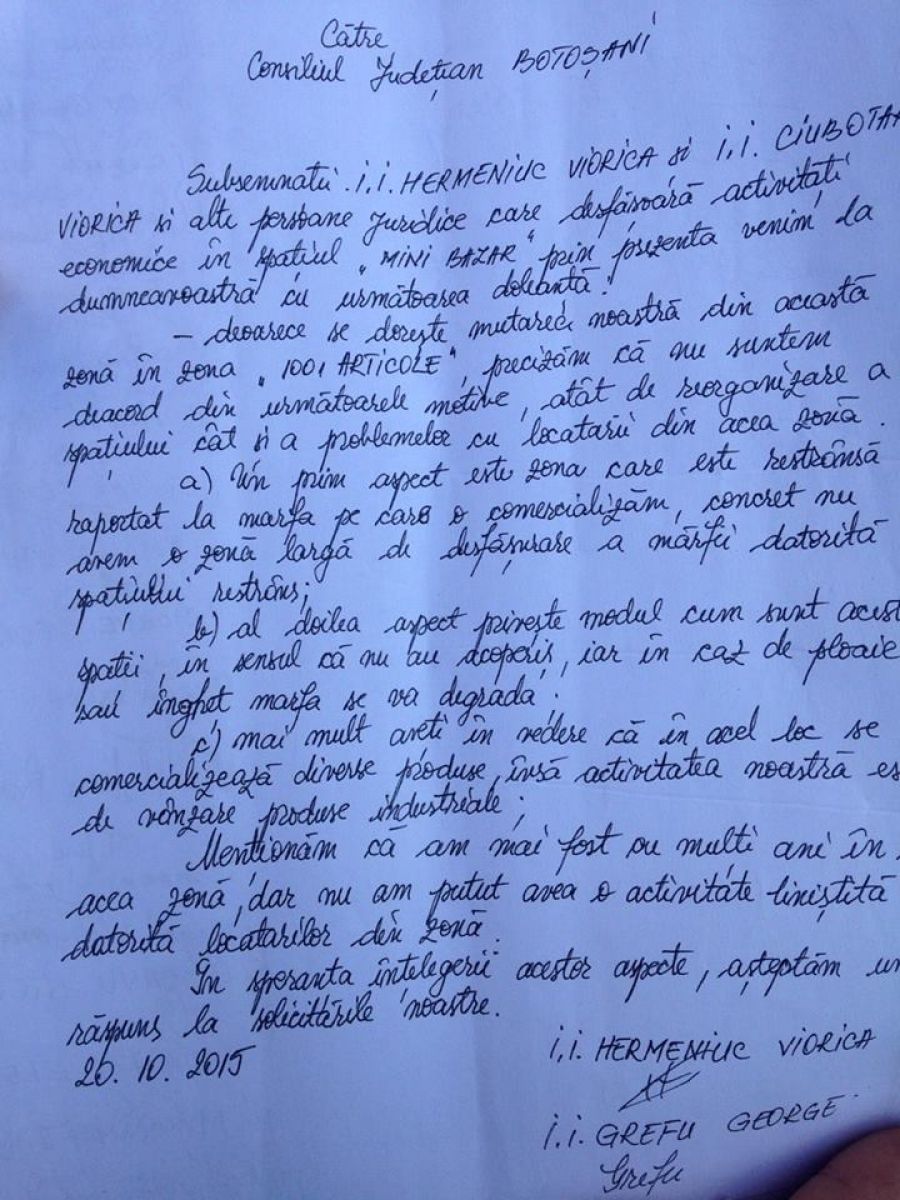 Către
Consiliul Județian BOTOȘANI
Subsemnatii i.i. HERMENIUC VIORICA si i.i. CIUBOTA
VIORICA si alte persoane juridice care desfăsoară activitati
economice în spatiul „MINI BAZAR" prin prezenta venim la
dumneavoastră cu următoarea doleantă:
– deoarece se dorește mutarea noastră din această
zonă în zona „1001 ARTICOLE", precizăm că nu suntem
deacord din următoarele motive, atât de reorganizare a
spațiului cât si a problemelor cu locatarii din acea zonă.
a) Un prim aspect este zona care este restrânsă
raportat la marfa pe care o comercializăm, concret nu
avem o zonă largă de desfășurare a mărfii datorită
spațiului restrâns;
b) al doilea aspect privește modul cum sunt acest
spatii, în sensul că nu au acoperiș, iar în caz de ploaie
sau îngheț marfa se va degrada;
c) mai mult aveti în vedere că în acel loc se
comercializează diverse produse, însă activitatea noastră es
de vânzare produse industriale;
Menționăm că am mai fost cu multi ani în
acea zonă, dar nu am putut avea o activitate liniștită
datorită locatarilor din zonă.
În speranta întelegerii acestor aspecte, așteptăm un
răspuns la solicittările noastre.
20.10.2015
i.i. HERMENIUC VIORICA
i.i. GREFU GEORGE
Grefu